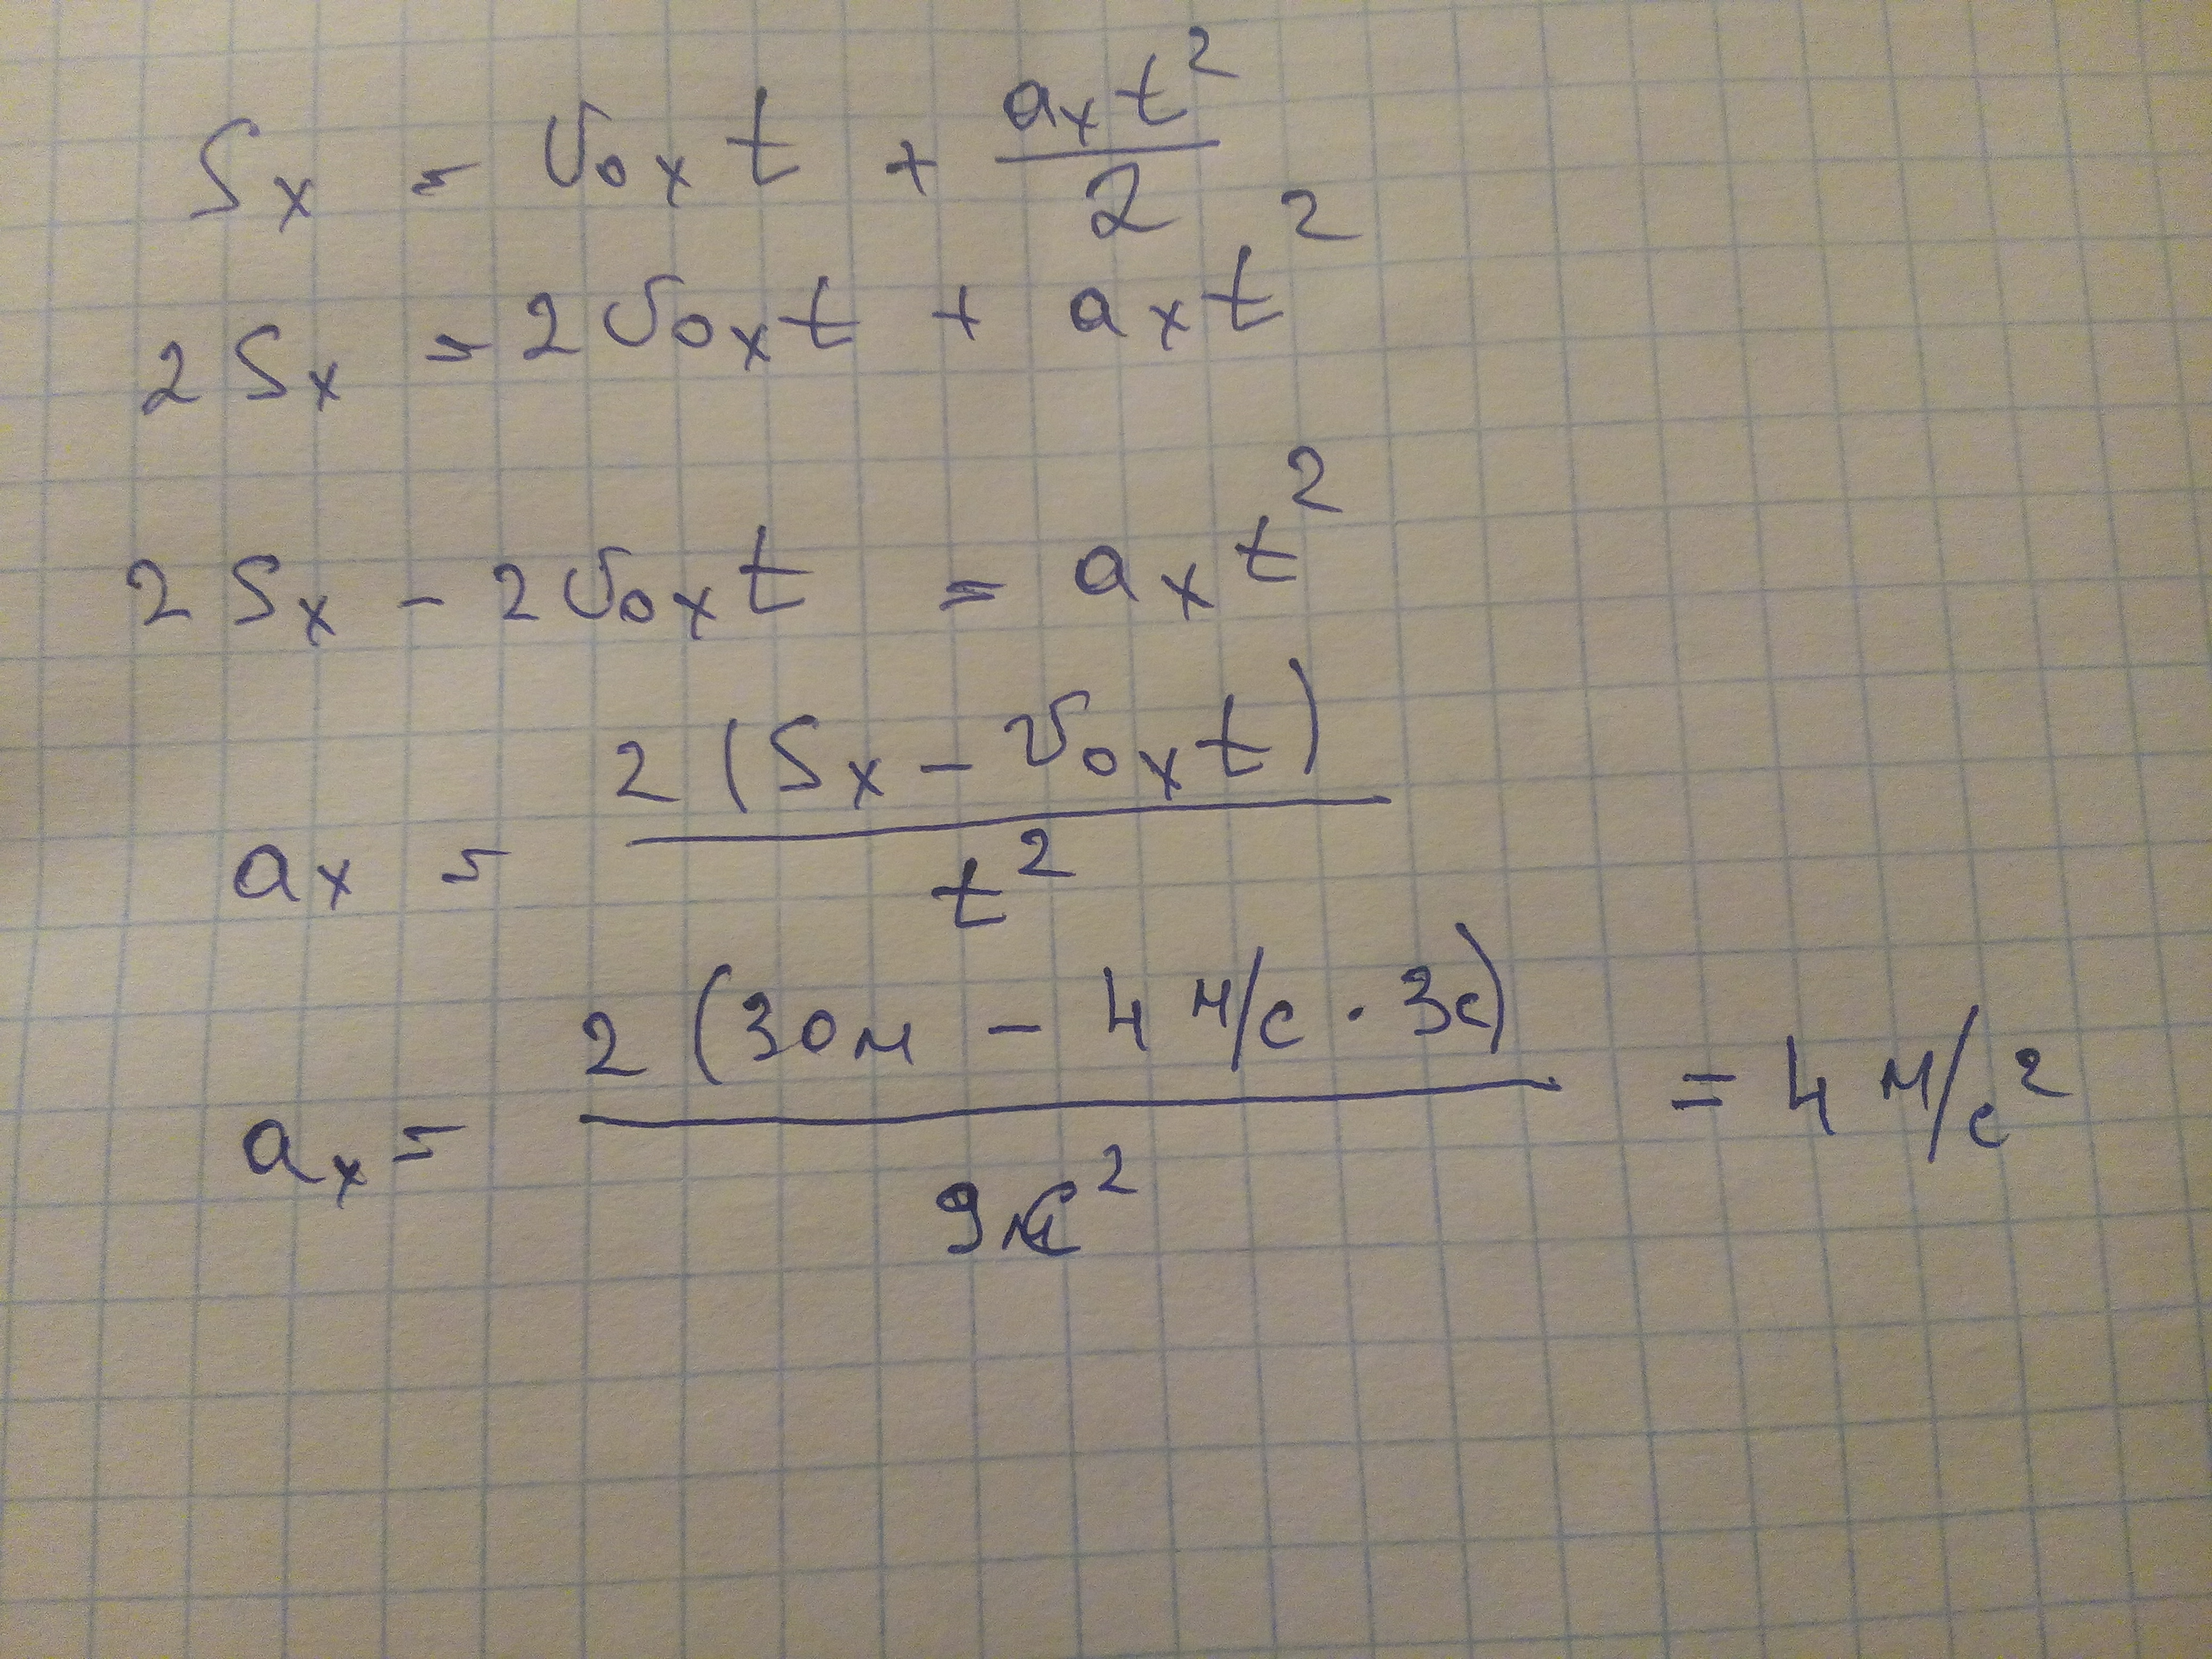 Sx = υ₀ₓt + aₓt²/2
2Sx = 2υ₀ₓt + aₓt²
2Sx - 2υ₀ₓt = aₓt²
aₓ = 2(Sx - υ₀ₓt)/t²
aₓ = 2(30м - 4 м/с · 3с)/9с² = 4 м/с²